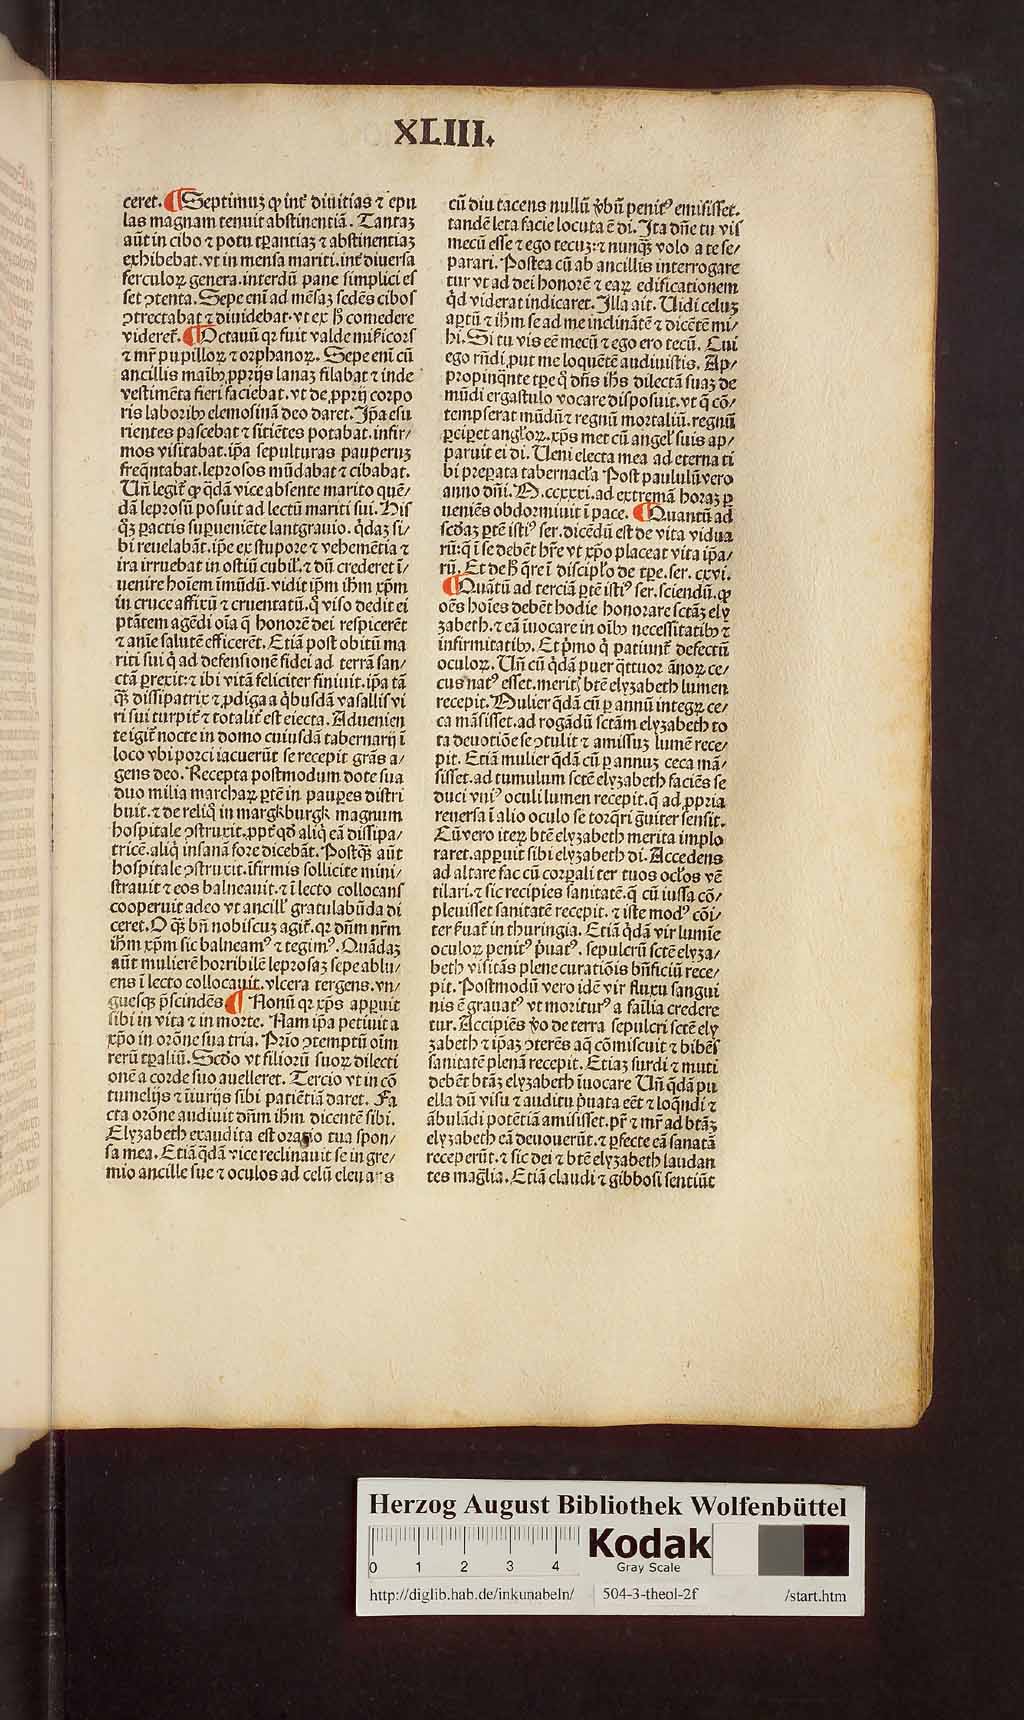 XLIII.
ceret. ¶ Septimuʒ ꝙ int᷑ diuitias ⁊ epu
las magnam tenuit abstinentiã. Tantaʒ
aũt in cibo ⁊ potu tꝑantiaʒ ⁊ abstinentiaʒ
exhibebat. vt in mensa mariti. int᷑ diuersa
ferculoꝝ genera. interdũ pane simplici es
set ꝯtenta. Sepe eni᷑ ad mẽsaʒ sedẽs cibos
ꝯtrectabat ⁊ diuidebat. vt ex h̃ comedere
videret᷑. ¶ Octauũ qꝛ fuit valde mi᷑icors
⁊ mr̃ pupilloꝝ ⁊ orphanoꝝ. Sepe eni᷑ cũ
ancillis maĩbꝰ ꝓprijs lanaʒ filabat ⁊ inde
vestimẽta fieri faciebat. vt de ꝓprij corpo
ris laboribꝰ elemosinã deo daret. Ip̃a esu
rientes pascebat ⁊ sitiẽtes potabat. infir⸗
mos visitabat. ip̃a sepulturas pauperuʒ
freq̃ntabat. leprosos mũdabat ⁊ cibabat.
Un̄ legit᷑ ꝙ q̃dã vice absente marito quẽ⸗
dã leprosũ posuit ad lectũ mariti sui. His
q̃ʒ ꝑactis suꝑueniẽte lantgrauio. q̃daʒ si⸗
bi reuelabãt. ip̃e ex stupore ⁊ vehemẽtia ⁊
ira irruebat in ostiũ cubil᷑. ⁊ dũ crederet ĩ⸗
uenire hoĩem ĩmũdũ. vidit ip̃m ih̃m xp̃m
in cruce affixũ ⁊ cruentatũ. q̊ viso dedit ei
ptãtem agẽdi oĩa q̃ honorẽ dei respicerẽt
⁊ anĩe salutẽ efficerẽt. Etiã post obitũ ma
riti sui q̃ ad defensionẽ fidei ad terrã san⸗
ctã ꝑrexit: ⁊ ibi vitã feliciter finiuit. ip̃a tã
q̃ʒ dissipatrix ⁊ ꝓdiga a q̃busdã vasallis vi
ri sui turpit᷑ ⁊ totalit᷑ est eiecta. Aduenien
te igit᷑ nocte in domo cuiusdã tabernarij ĩ
loco vbi porci iacuerũt se recepit gr̃as a⸗
gens deo. Recepta postmodum dote sua
duo milia marchaꝝ ꝑtẽ in pauꝑes distri
buit. ⁊ de reliq̃ in margkburgk magnum
hospitale ꝯstruxit. ꝓpt᷑ qđ aliq̃ eã dissipa⸗
tricẽ. aliq̃ insanã fore dicebãt. Postq̃ʒ aũt
hospitale ꝯstruxit. ĩfirmis sollicite mini⸗
strauit ⁊ eos balneauit. ⁊ ĩ lecto collocans
cooperuit adeo vt ancill᷑ gratulabũda di
ceret. O q̃ʒ bn̄ nobiscuʒ agit᷑. qꝛ dñm nr̃m
ih̃m xp̃m sic balneamꝰ ⁊ tegimꝰ. Quãdaʒ
aũt mulierẽ horribilẽ leprosaʒ sepe ablu⸗
ens ĩ lecto collocauit. vlcera tergens. vn⸗
guesqʒ p̃scindẽs. ¶ Nonũ qꝛ xp̃s apꝑuit
sibi in vita ⁊ in morte. Nam ip̃a petiuit a
xp̃o in or̃one sua tria. Prĩo ꝯtemptũ oĩm
rerũ tꝑaliũ. Scd̃o vt filiorũ suoꝝ dilecti
onẽ a corde suo auelleret. Tercio vt in cõ
tumelijs ⁊ ĩiurijs sibi patiẽtiã daret. Fa
cta or̃one audiuit dñm ih̃m dicentẽ sibi.
Elyzabeth exaudita est oratio tua spon⸗
sa mea. Etiã q̃dã vice reclinauit se in gre⸗
mio ancille sue ⁊ oculos ad celũ eleuans
cũ diu tacens nullũ v̊bũ penitꝰ emisisset.
tandẽ leta facie locuta ẽ di. Ita dñe tu vis
mecũ esse ⁊ ego tecuʒ: ⁊ nunq̃ʒ volo a te se⸗
parari. Postea cũ ab ancillis interrogare
tur vt ad dei honorẽ ⁊ eaꝝ edificationem
q̃d viderat indicaret. Illa ait. Uidi celuʒ
aꝑtũ ⁊ ih̃m se ad me inclinãtẽ ⁊ dicẽtẽ mi⸗
hi. Si tu vis eẽ mecũ ⁊ ego ero tecũ. Cui
ego rñdi ꝓut me loquẽtẽ audiuistis. Ap⸗
propinq̃nte tꝑe q̊ dñs ih̃s dilectã suaʒ de
mũdi ergastulo vocare disposuit. vt q̃ cõ⸗
tempserat mũdũ ⁊ regnũ mortaliũ. regnũ
ꝑciꝑet angl̓oꝝ. xp̃s met cũ angel᷑ suis ap⸗
paruit ei di. Ueni electa mea ad eterna ti
bi preꝑata tabernacl̓a Post paululũ vero
anno dñi. M.ccxxxi. ad extremã horaʒ ꝑ
ueniẽs obdormiuit ĩ pace. ¶ Quantũ ad
scd̃aʒ ꝑtẽ istiꝰ ser. dicẽdũ est de vita vidua
rũ: q̃ ĩ se debẽt hr̃e vt xp̃o placeat vita ip̃a⸗
rũ. Et de h̃ q̃re ĩ discipl̓o de tꝑe. ser. cxvi.
¶ Quãtũ ad terciã ꝑtẽ istiꝰ ser. sciendũ. ꝙ
oẽs hoĩes debẽt hodie honorare sctãʒ ely
zabeth. ⁊ eã ĩuocare in oĩbꝰ necessitatibꝰ ⁊
infirmitatibꝰ. Et p̃mo q̃ patiunt᷑ defectũ
oculoꝝ. Un̄ cũ q̃dã puer q̃ttuor ãnoꝝ ce⸗
cus natꝰ esset. meritʒ btẽ elyzabeth lumen
recepit. Mulier q̃dã cũ ꝑ annũ integꝝ ce⸗
ca mãsisset. ad rogãdũ sctãm elyzabeth to
ta deuotiõe se ꝯtulit ⁊ amissuʒ lumẽ rece⸗
pit. Etiã mulier q̃dã cũ ꝑ annuʒ ceca mã⸗
sisset. ad tumulum sctẽ elyzabeth faciẽs se
duci vniꝰ oculi lumen recepit. q̃ ad ꝓpria
reuersa ĩ alio oculo se torq̃ri g̃uiter sensit.
Cũ vero iteꝝ btẽ elyzabeth merita implo
raret. apꝑuit sibi elyzabeth di. Accedens
ad altare fac cũ corꝑali ter tuos ocl̓os vẽ
tilari. ⁊ sic recipies sanitatẽ. q̃ cũ iussa cõ⸗
pleuisset sanitatẽ recepit. ⁊ iste modꝰ cõi⸗
ter ẽuat᷑ in thuringia. Etiã q̃dã vir lumĩe
oculoꝝ penitꝰ p̃uatꝰ. sepulcrũ sctẽ elyza⸗
beth visitãs plene curatiõis bñficiũ rece⸗
pit. Postmodũ vero idẽ vir fluxu sangui
nis ẽ grauatꝰ vt moriturꝰ a fãilia credere
tur. Accipiẽs v̊o de terra sepulcri sctẽ ely
zabeth ⁊ ip̃aʒ ꝯterẽs aq̃ cõmiscuit ⁊ bibẽs
sanitatẽ plenã recepit. Etiaʒ surdi ⁊ muti
debẽt btãʒ elyzabeth ĩuocare Un̄ q̃dã pu
ella dũ visu ⁊ auditu p̃uata eẽt ⁊ loq̃ndi ⁊
ãbulãdi potẽtiã amisisset. pr̃ ⁊ mr̃ ad btãʒ
elyzabeth eã deuouerũt. ⁊ ꝑfecte eã sanatã
receperũt. ⁊ sic dei ⁊ btẽ elyzabeth laudan
tes mag̃lia. Etiã claudi ⁊ gibbosi sentiũt
Herzog August Bibliothek Wolfenbüttel
0 1 2 3 4
Kodak
Gray Scale
http://diglib.hab.de/inkunabeln/ 504-3-theol-2f /start.htm